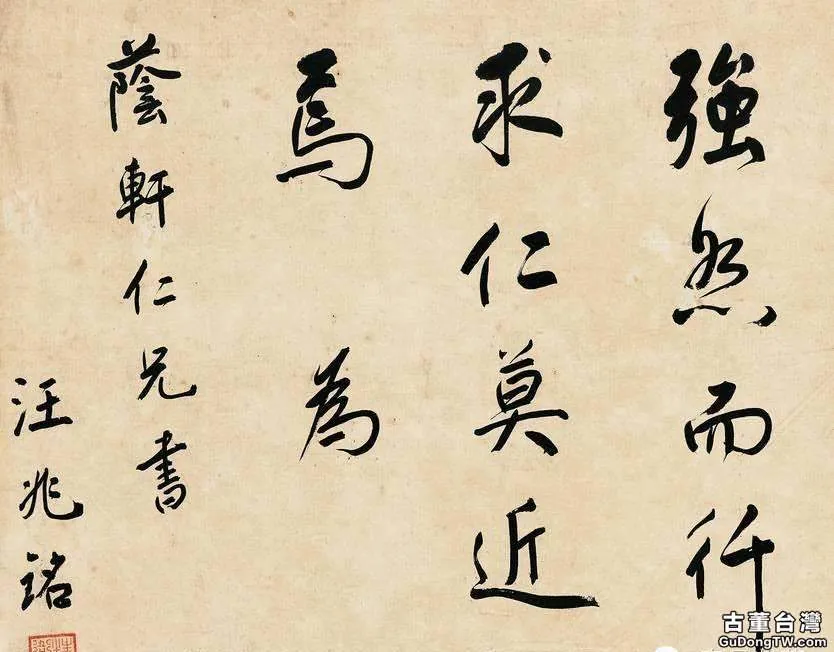 強恕而行
求仁莫近
焉 為
蔭軒仁兄書
汪兆銘
古董台灣
GuDongTW.com